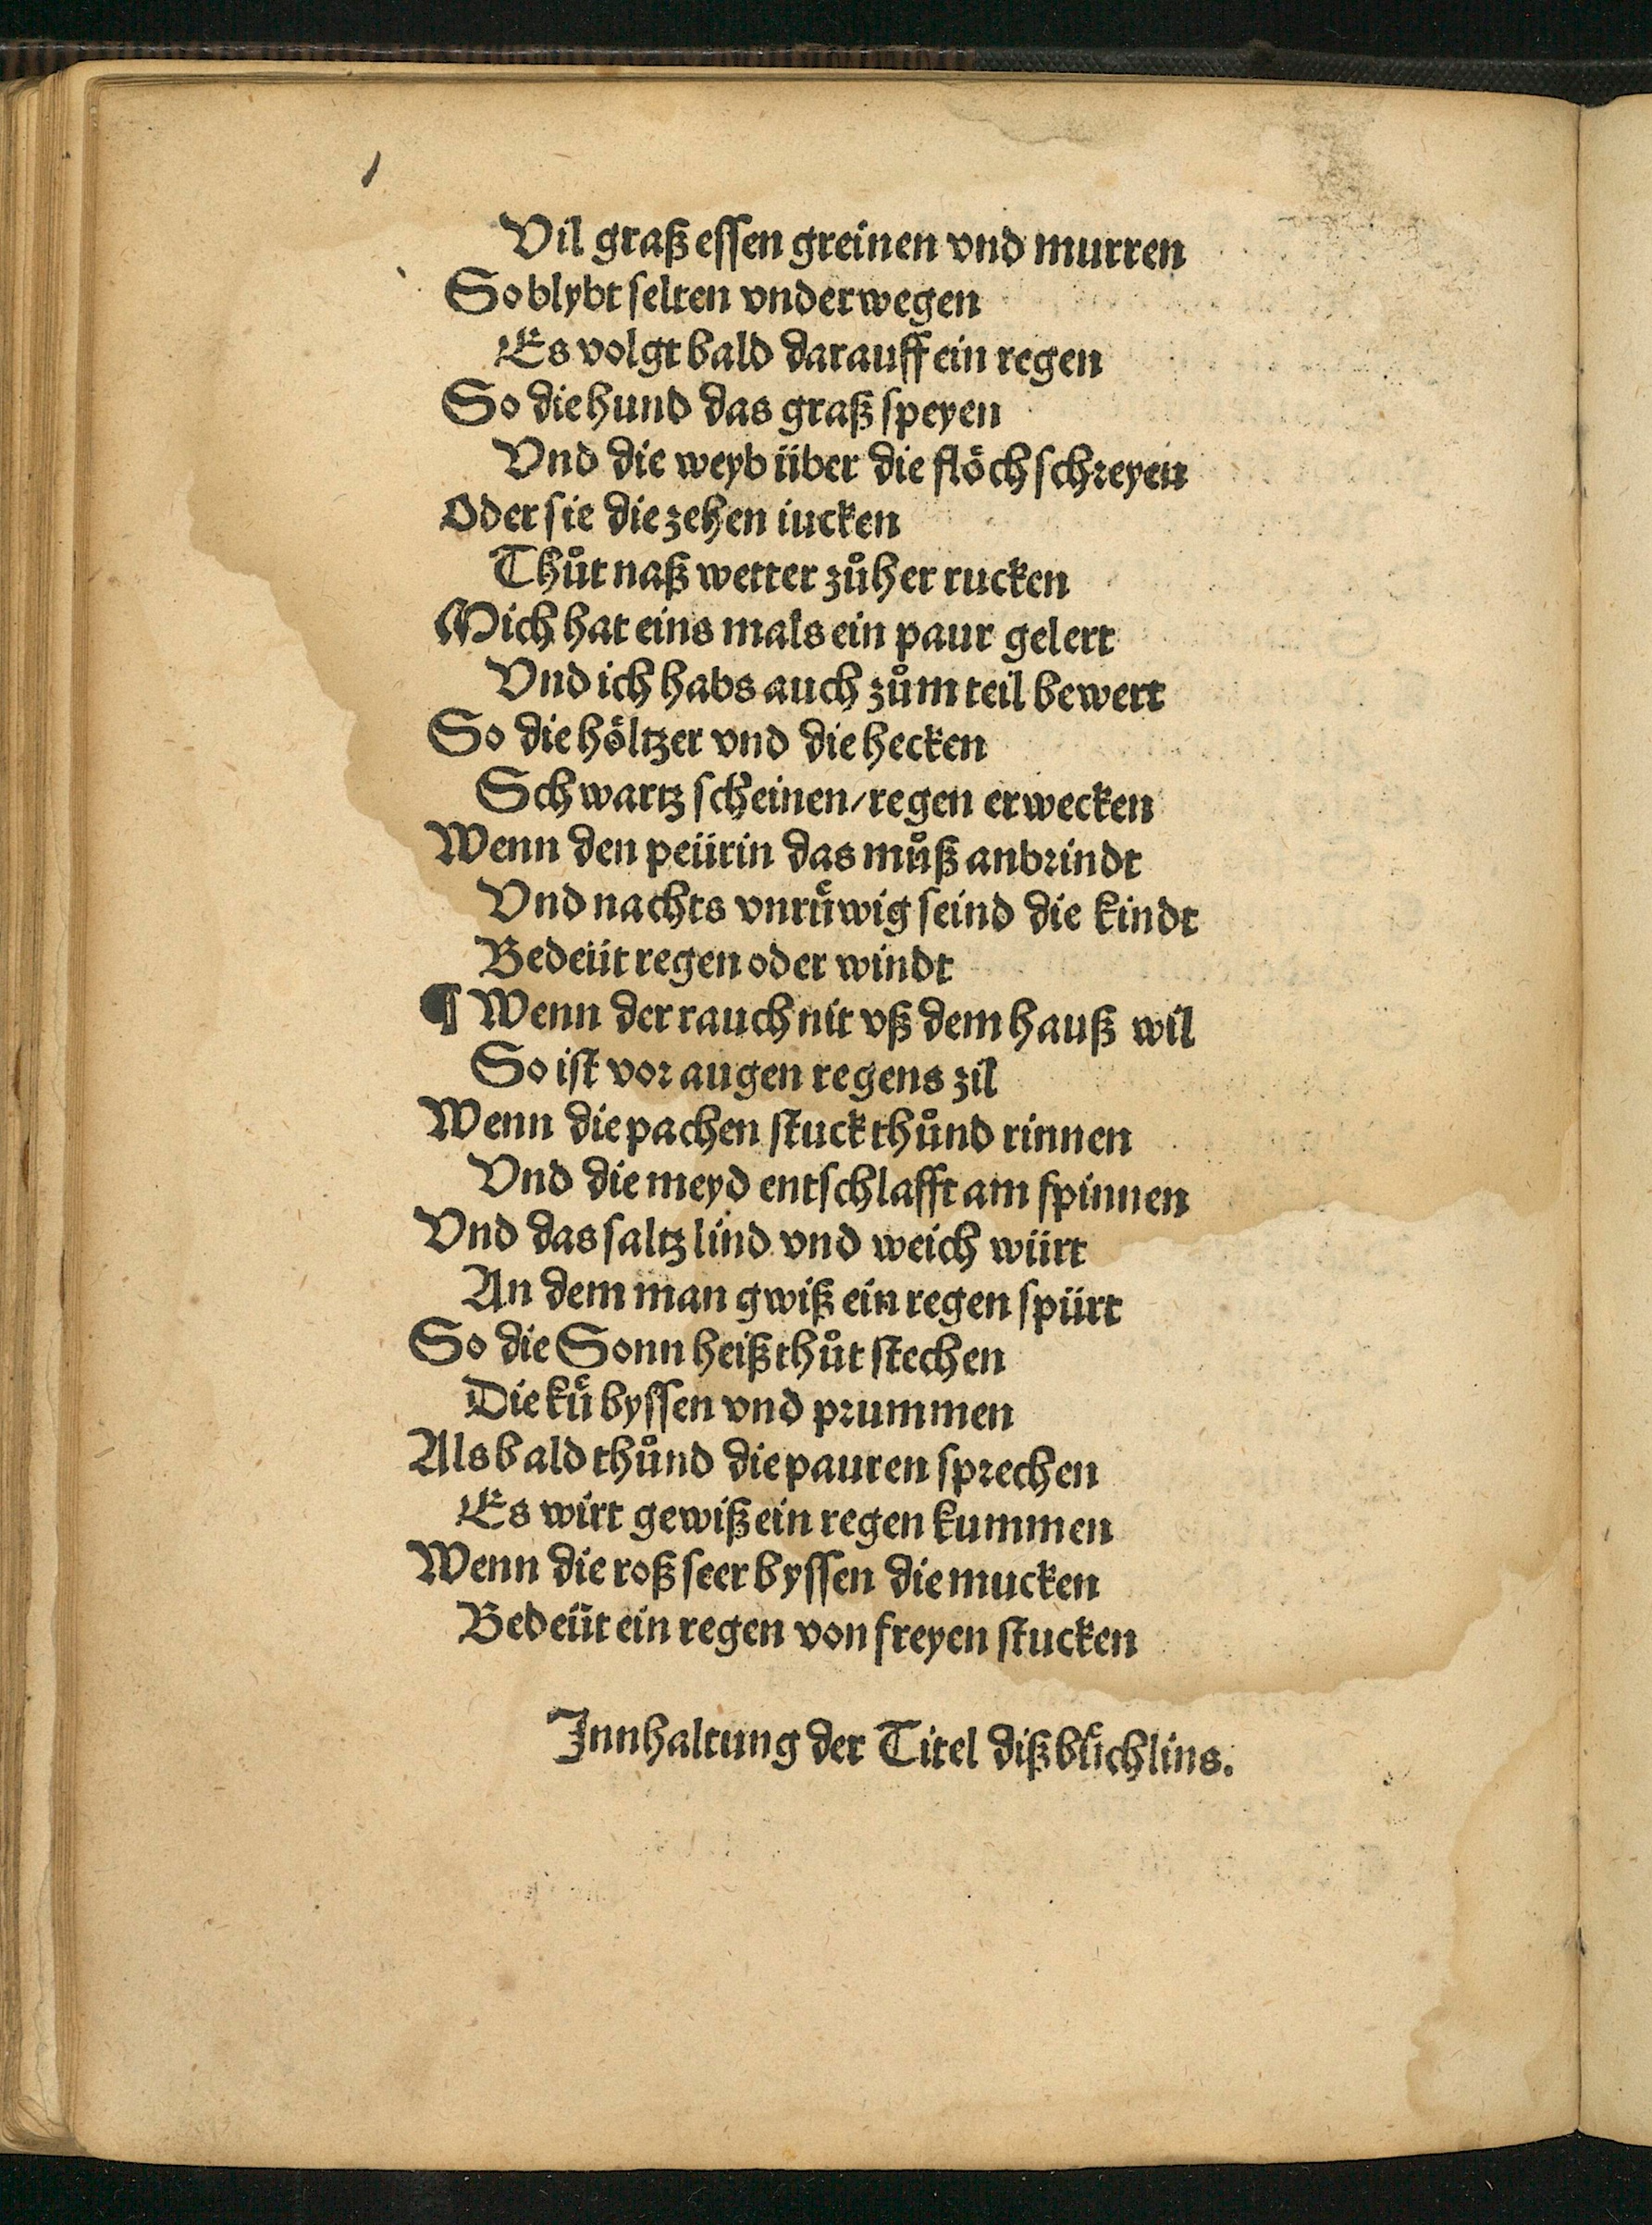 Vil graß essen greinen vnd murren
So blybt selten vnderwegen
Es volgt bald darauff ein regen
So die hund das graß speyen
Vnd die weyb über die floͤch schreyen
Oder sie die zehen iucken
Thuͦt naß wetter zuͦher rucken
Mich hat eins mals ein paur gelert
Vnd ich habs auch zuͦm teil bewert
So die hoͤltzer vnd die hecken
Schwartz scheinen/regen erwecken
Wenn den peürin das muͦß anbrindt
Vnd nachts vnruͤwig seind die kindt
Bedeüt regen oder windt
¶ Wenn der rauch nit vß dem hauß wil
So ist vor augen regens zil
Wenn die pachen stuck thuͦnd rinnen
Vnd die meyd entschlafft am spinnen
Vnd das saltz lind vnd weich würt
An dem man gwiß ein regen spürt
So die Sonn heiß thuͦt stechen
Die kuͤ byssen vnd prummen
Als bald thuͦnd die pauren sprechen
Es wirt gewiß ein regen kummen
Wenn die roß seer byssen die mucken
Bedeüt ein regen von freyen stucken
Innhaltung der Titel diß buͤchlins.